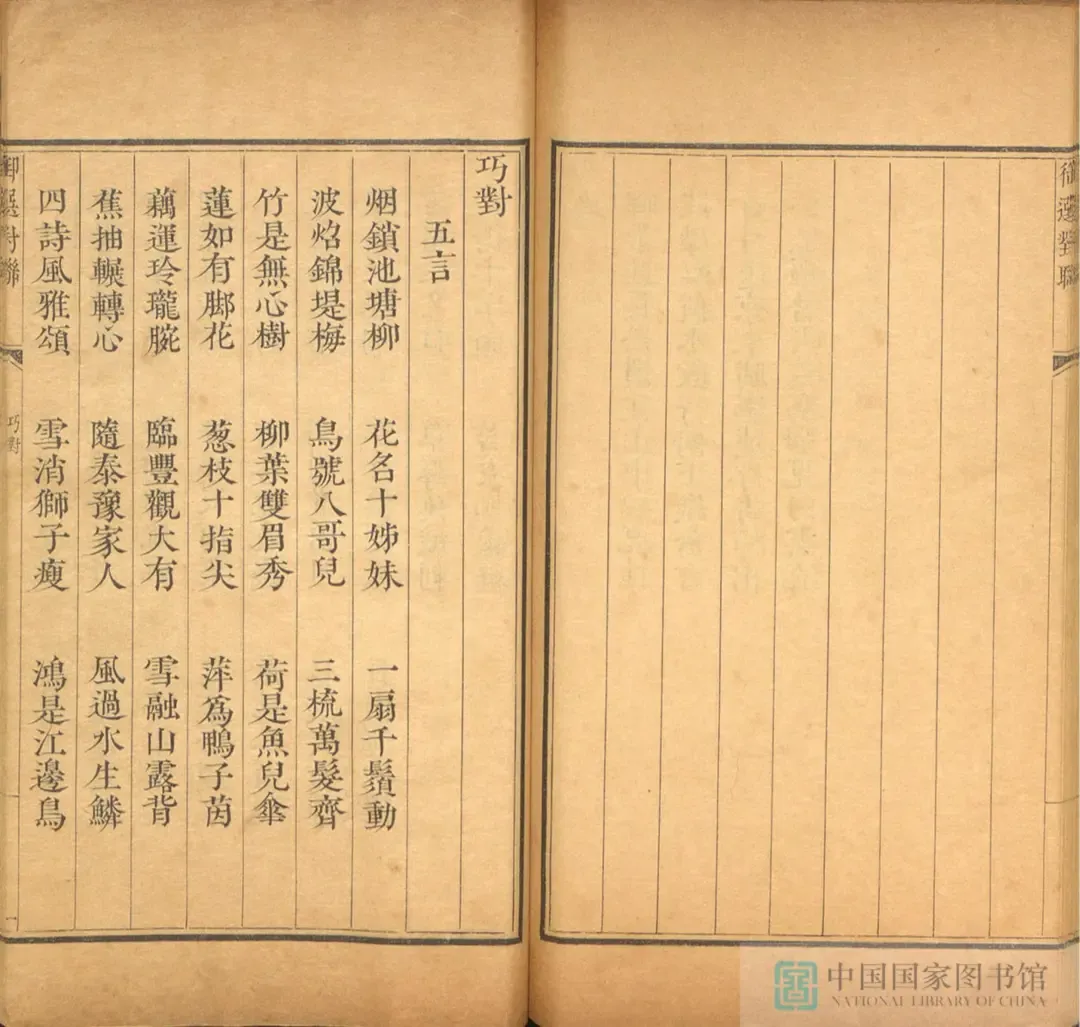 御選對聯
巧對
五言
烟鎖池塘柳 花名十姊妹 一扇千鬚動
波焰錦堤梅 鳥號八哥兒 三梳萬髮齊
竹是無心樹 柳葉雙眉秀 荷是魚兒傘
蓮如有脚花 葱枝十指尖 萍為鴨子茵
藕運玲瓏腕 臨豐觀大有 雪融山露背
蕉抽輾轉心 隨泰豫家人 風過水生鱗
四詩風雅頌 雪消獅子瘦 鴻是江邊鳥
御選對聯
巧對
一
中国国家图书馆
NATIONAL LIBRARY OF CHINA